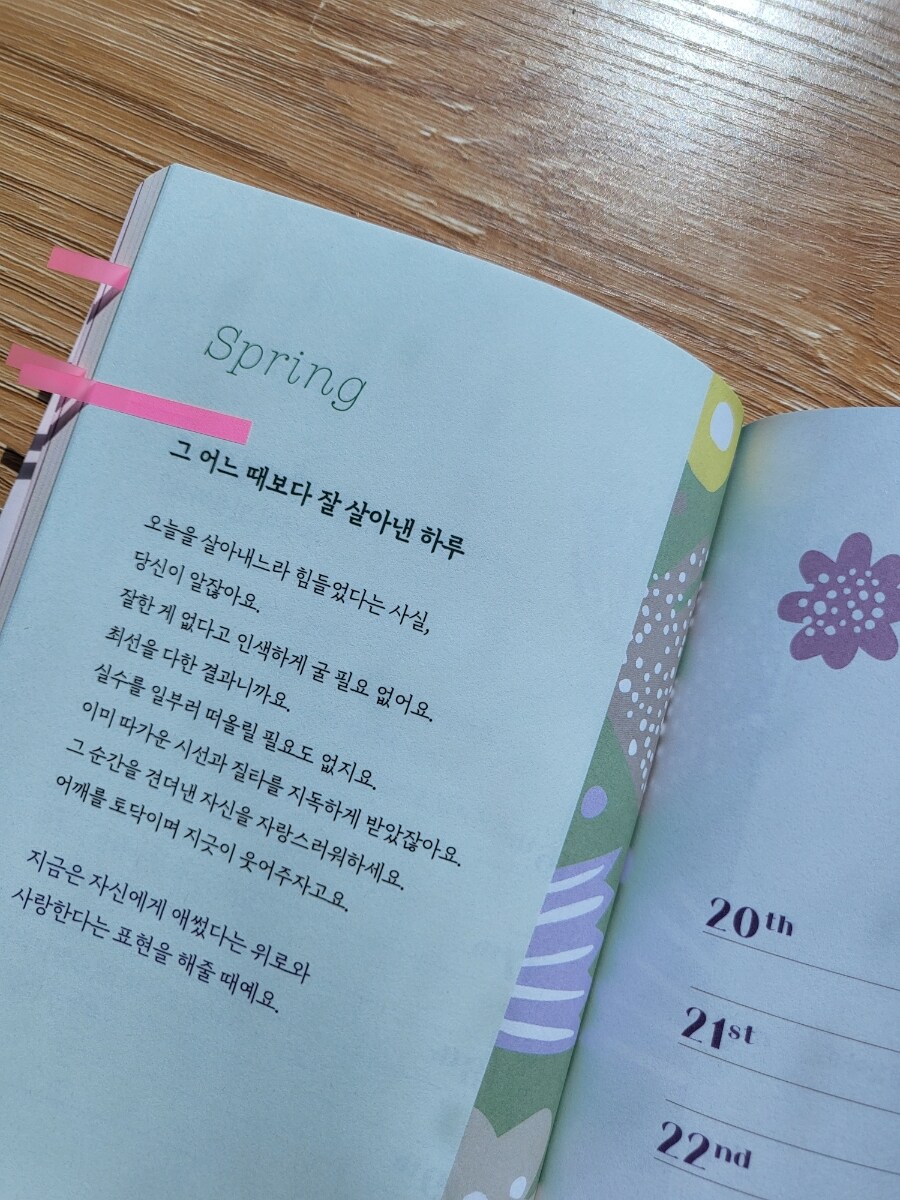 Spring
그 어느 때보다 잘 살아낸 하루
오늘을 살아내느라 힘들었다는 사실,
당신이 알잖아요.
잘한 게 없다고 인색하게 굴 필요 없어요.
최선을 다한 결과니까요.
실수를 일부러 떠올릴 필요도 없지요.
이미 따가운 시선과 질타를 지독하게 받았잖아요.
그 순간을 견뎌낸 자신을 자랑스러워하세요.
어깨를 토닥이며 지긋이 웃어주자고요.
지금은 자신에게 애썼다는 위로와
사랑한다는 표현을 해줄 때예요.
20th
21st
22nd